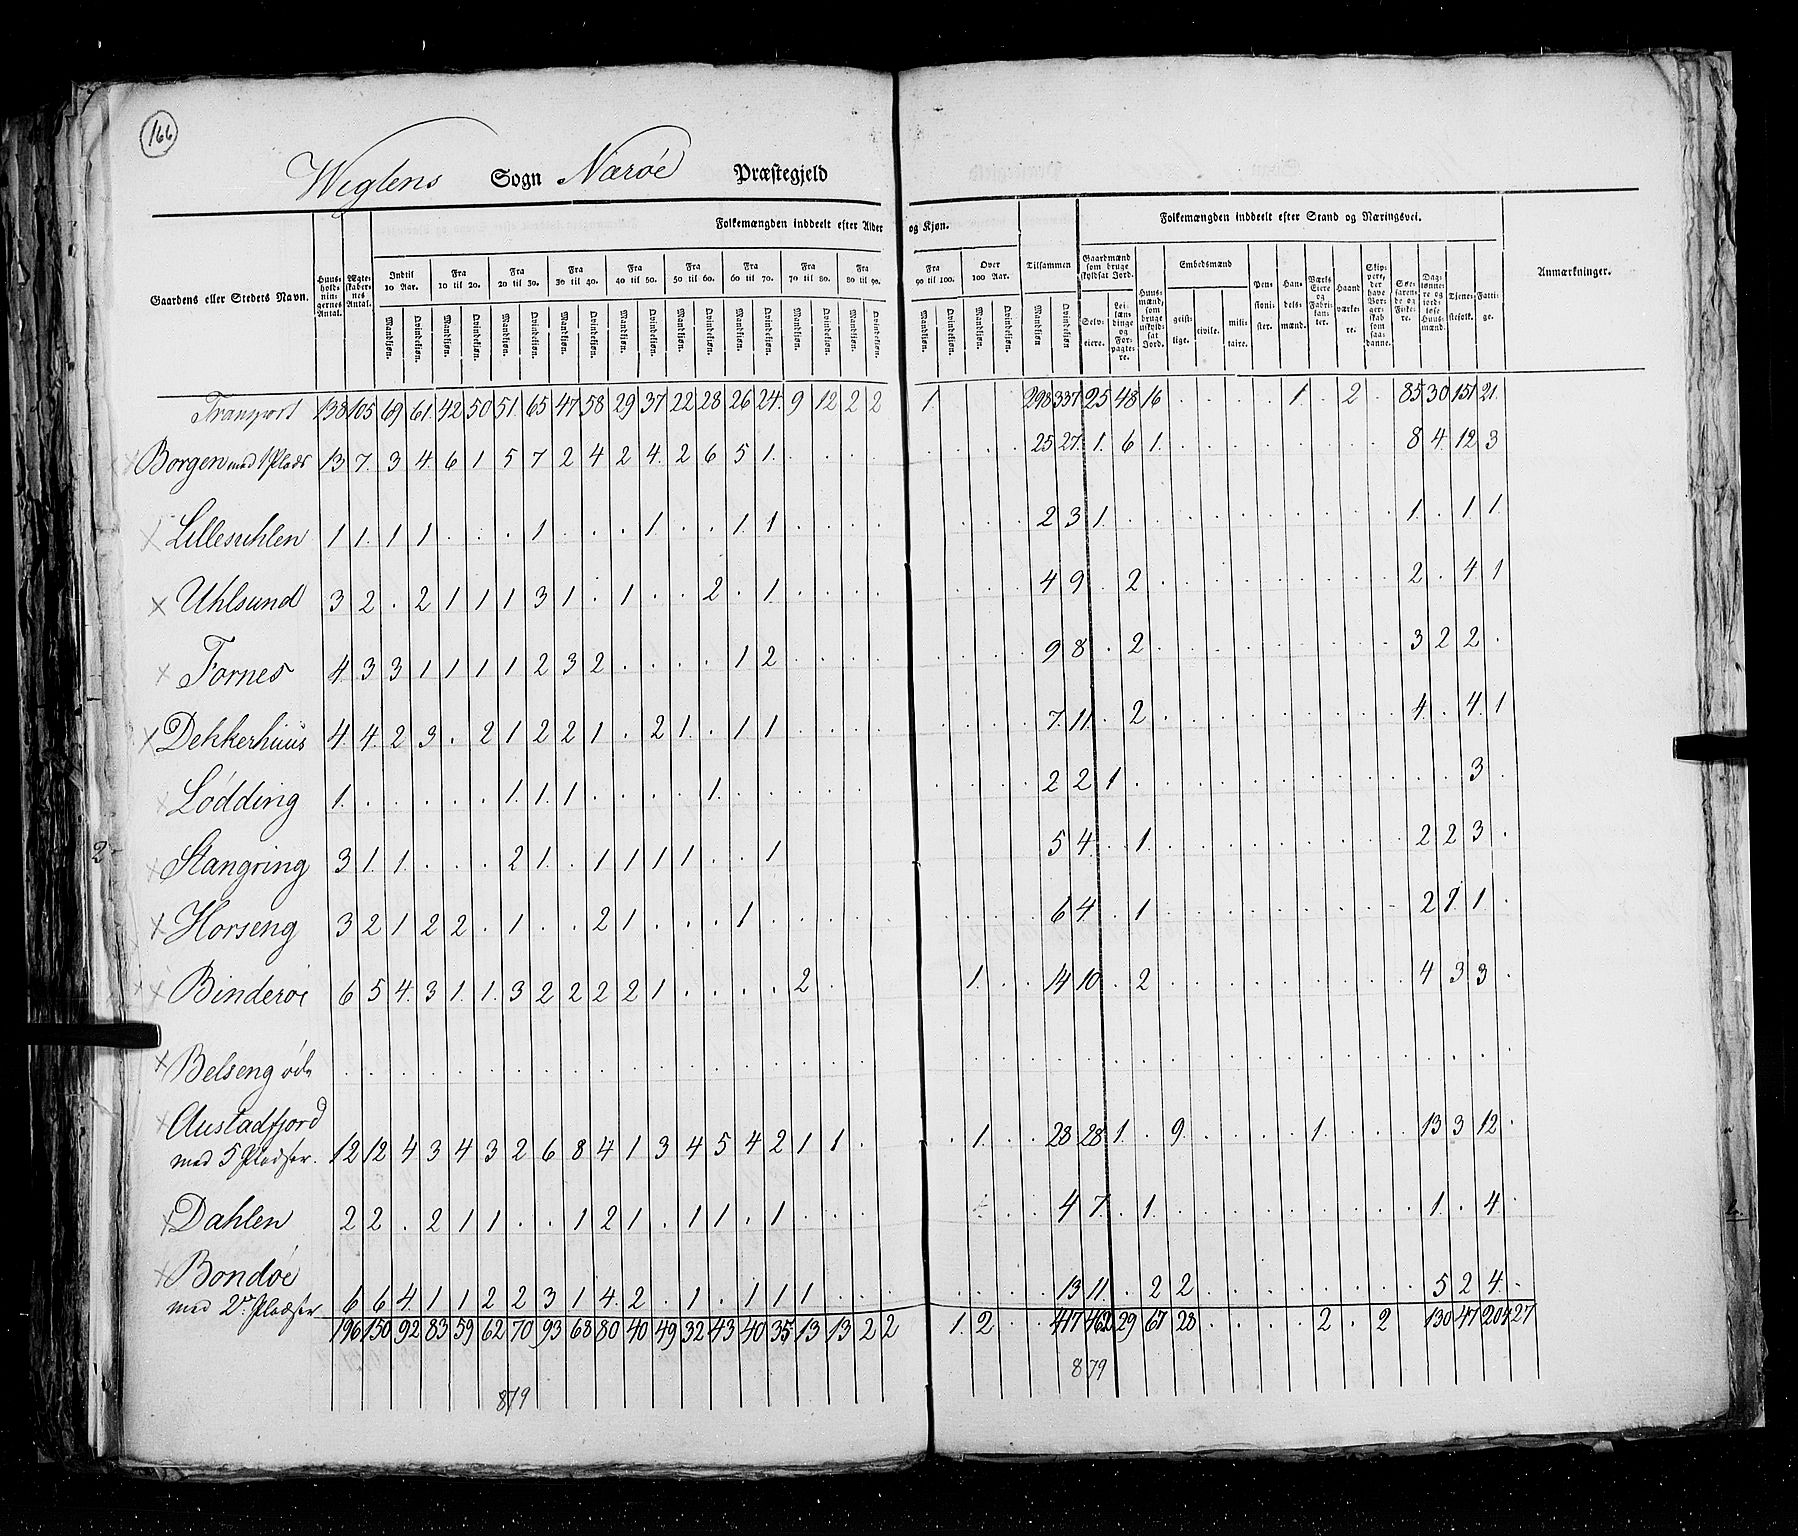 166
Weglens Sogn Nærøe Præstegjeld
Folkemængden inddeelt efter Alder og Kjøn.
Folkemængden inddeelt efter Stand og Næringsvei.
Gaardens eller Stedets Navn.
Huusholdningernes Antal.
Ægteskabernes Antal.
Indtil 10 Aar.
Fra 10 til 20.
Fra 20 til 30.
Fra 30 til 40.
Fra 40 til 50.
Fra 50 til 60.
Fra 60 til 70.
Fra 70 til 80.
Fra 80 til 90.
Fra 90 til 100.
Over 100 Aar.
Tilsammen
Mandkjøn. Qvindekjøn.
Gaardmænd som bruge skyldsat Jord.
Selveiere.
Leilændinge og Forpagtere.
Huusmænd, som bruge uskyldsat Jord.
Embedsmænd
geistlige. civile. militaire.
Pensionister.
Handelsmænd.
Værks Eiere og Fabrikanter.
Haandværkere.
Skippere, der have Borgerskab som saadanne.
Søefarende og Fiskere.
Daglønnere og jordløse Huusmænd.
Tjenestefolk.
Fattige.
Anmærkninger.
Transport 138 105 69 61 42 50 51 65 47 58 29 37 22 28 26 24 9 12 2 2 1 . . . 298 337 25 48 16 . . . . 1 . 2 . 85 30 151 21
Borgen med 1 Plads 13 7 3 4 6 1 5 7 2 4 2 4 2 6 5 1 . . . . . . . . 25 27 1 6 1 . . . . . . . . 8 4 12 3
Lillesuhlen 1 1 1 1 . . . 1 . . . 1 . . 1 1 . . . . . . . . 2 3 1 . . . . . . . . . . 1 . 1 1
Uhlsund 3 2 . 2 1 1 1 3 1 . 1 . . 2 . 1 . . . . . . . . 4 9 . 2 . . . . . . . . . 2 . 4 1
Fornes 4 3 3 1 1 1 1 2 3 2 . . . . 1 2 . . . . . . . . 9 8 . 2 . . . . . . . . . 3 2 2 .
Dekkerhuus 4 4 2 3 . 2 1 2 2 1 . 2 1 . 1 1 . . . . . . . . 7 11 . 2 . . . . . . . . . 4 . 4 1
Lødding 1 . . . . . 1 1 1 . . . . 1 . . . . . . . . . . 2 2 1 . . . . . . . . . . . . 3
Stangring 3 1 1 . . . 2 1 . 1 1 1 1 . . 1 5 4 . 1 . . . . . . . . . 2 2 3 .
Horseng 3 2 1 2 2 . 1 . . 2 1 . . . 1 . . . . . . . . . 6 4 . 1 . . . . . . . . . 2 1 1 .
Binderøe 6 5 4 3 1 1 3 2 2 2 2 1 . . . . 2 . 1 . . 14 10 . 2 . . . . . . . . . 4 3 3 .
Belseng øde
Austadfjord
med 5 Pladser. 12 12 4 3 4 3 2 6 8 4 1 3 4 5 4 2 1 1 . . 1 . . 28 28 1 . 9 . . . . 1 . . . 13 3 12 .
Dahlen 2 2 . 2 1 1 . . 1 2 1 . 1 1 . 1 . . . . . . . 4 7 . 1 . . . . . . . . . 1 . 4 .
Bondøe
med 2de Pladser 6 6 4 1 1 2 2 3 1 4 2 . 1 . 1 1 1 . . . . . . . 13 11 . 2 2 . . . . . . . . 5 2 4 .
196 150 92 83 59 62 70 93 68 80 40 49 32 43 40 35 13 13 2 2 1 2 . . 417 462 29 67 28 . . . . 2 . 2 130 47 204 27
879
879